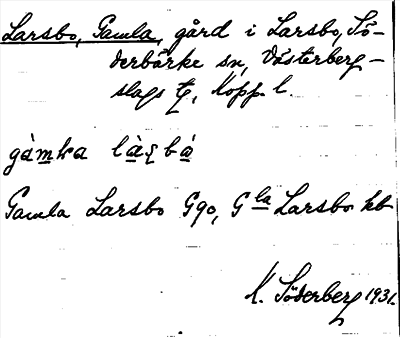 Larsbo, Gamla, gård i Larsbo, Sö-
derbärke sn, Västerberg-
slags tg, Kopp. l.
gàmka là̱ʂbò̱
Gamla Larsbo G90, G la Larsbo kb
K. Söderberg 1931.